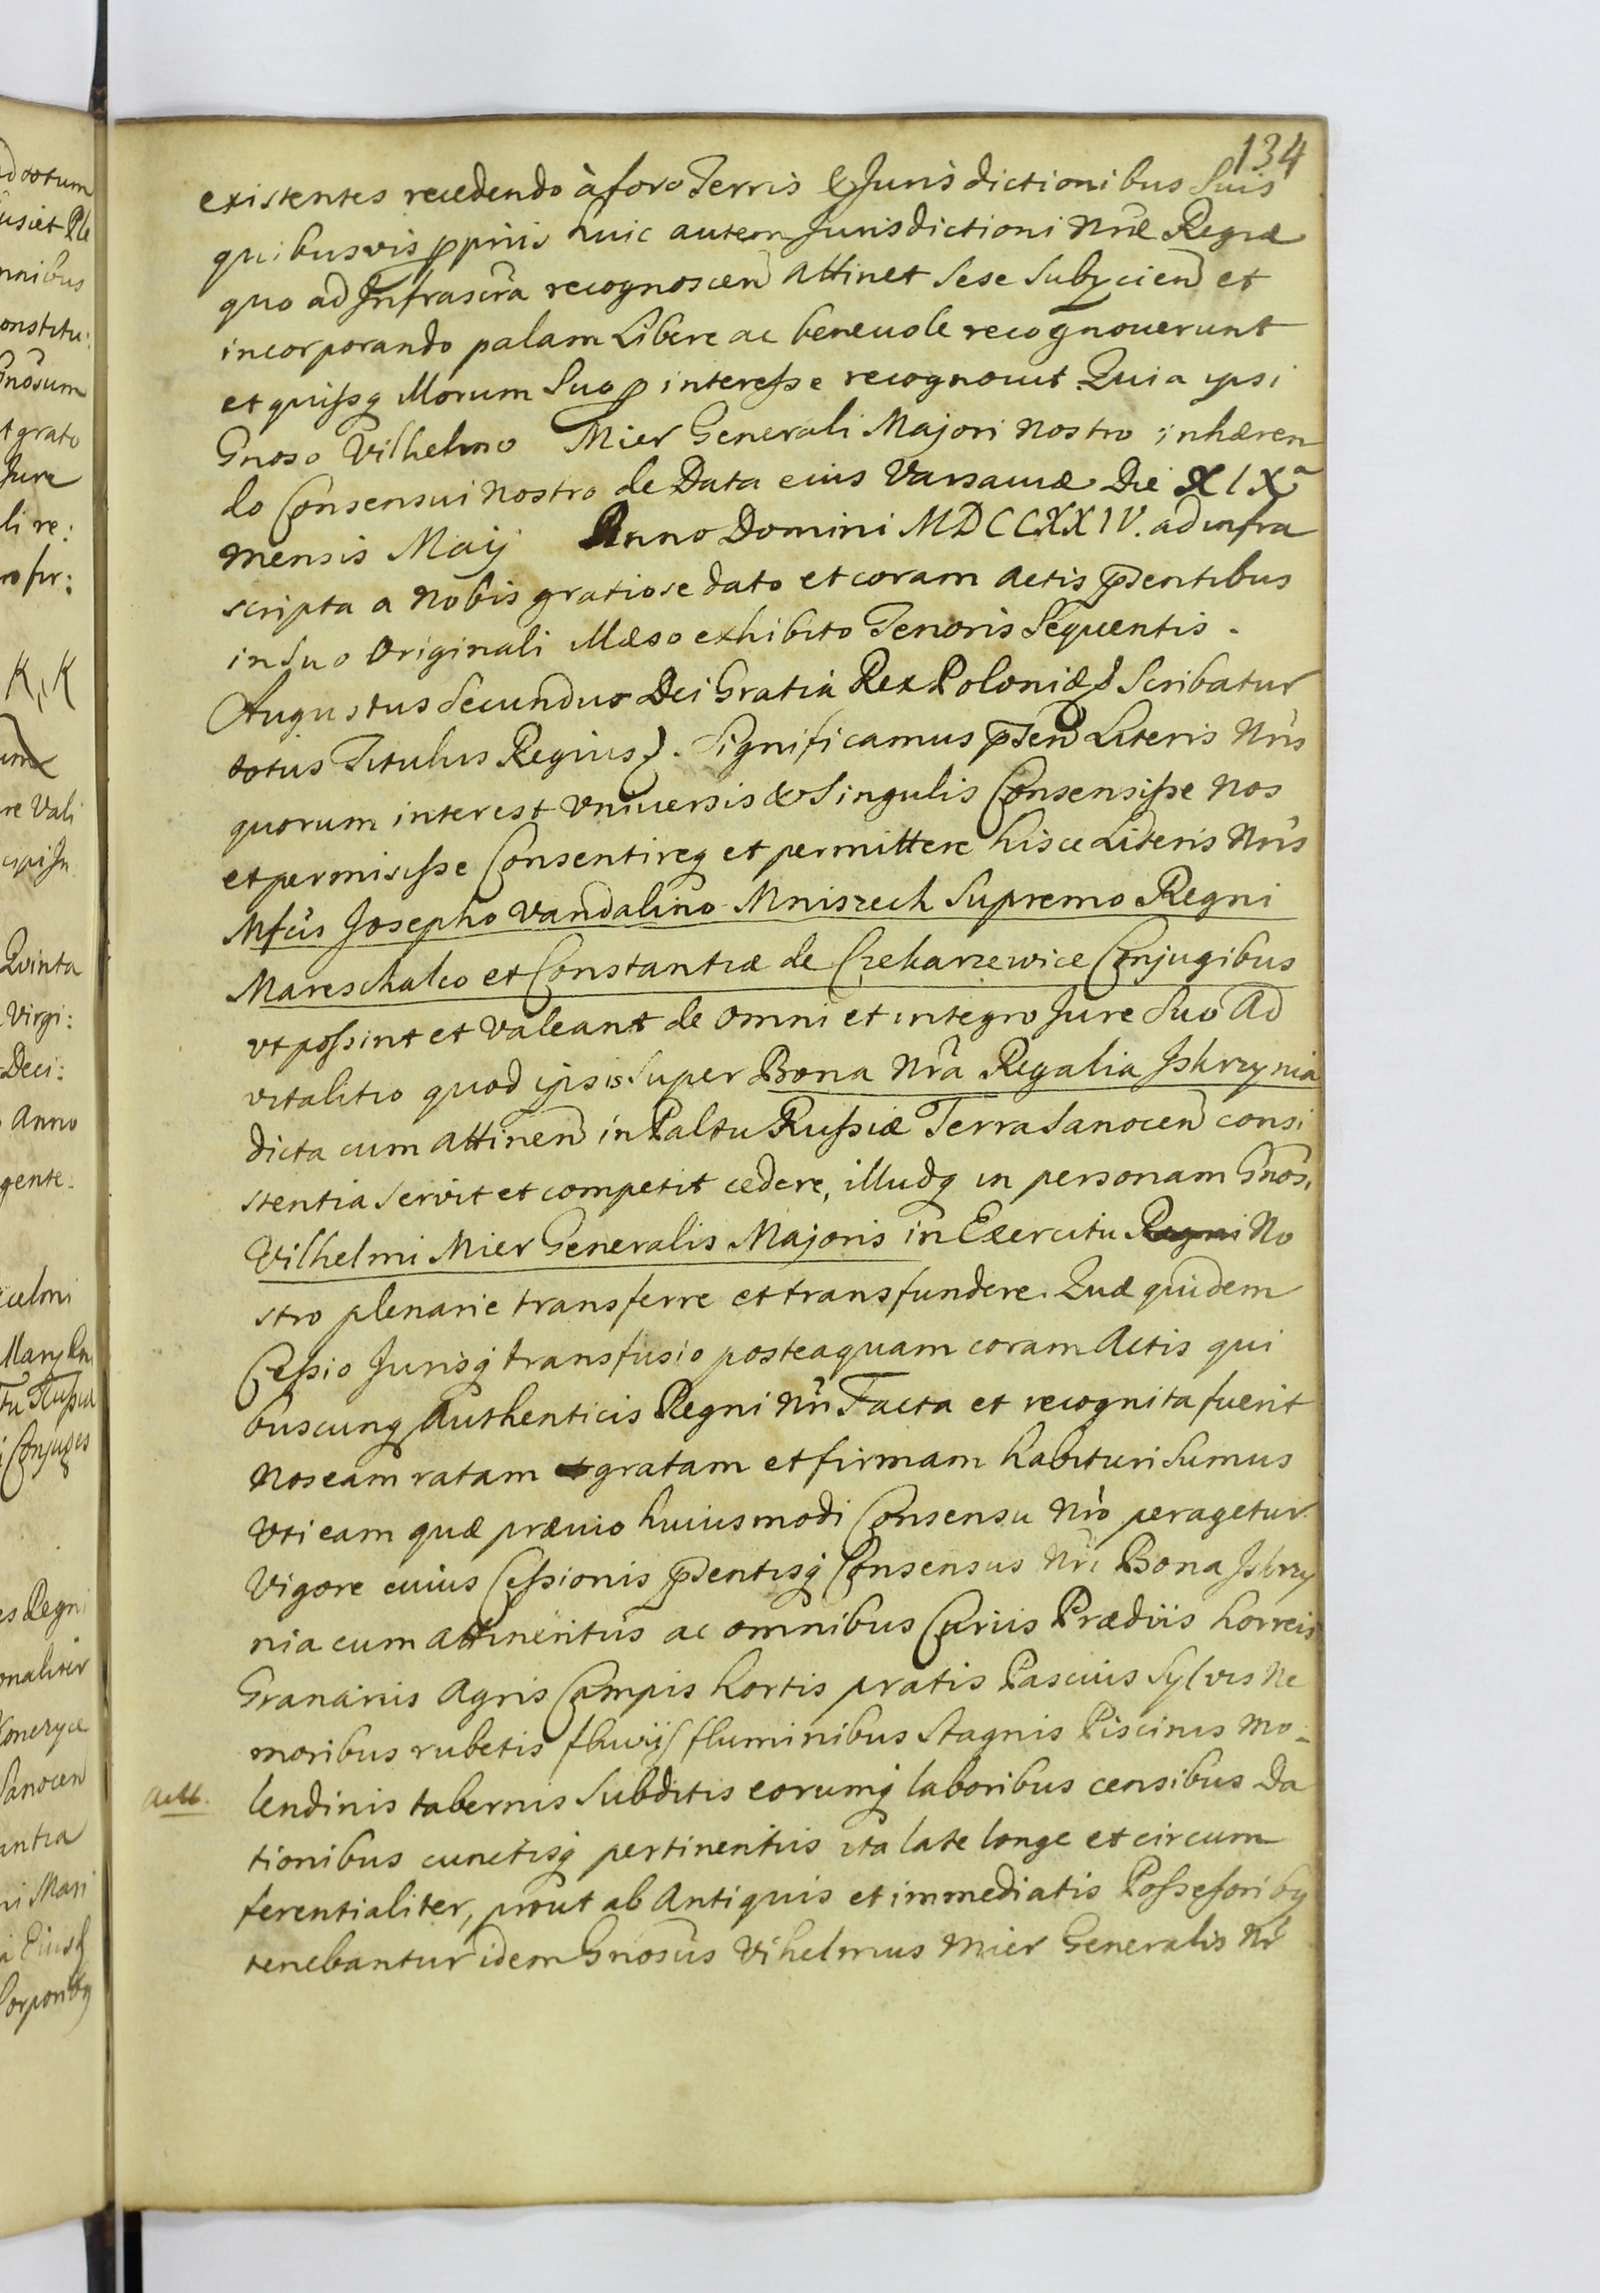 134
existentes recedendo à foro Terris & Jurisdictionibus Suis
quibusvis pprijs huic autem Jurisdictioni Nrae Regiae
quo ad Infrascra recognoscen attinet Sese Subjicien et
incorporando palam Libere ac beneuole recognouerunt
et quissq Morum Suo p interesse recognouit. Quia ipsi
Gnoso Vilhelmo Mier Generali Majori Nostro inhaeren
do Consensui nostro de Data eius Varsauiae Die XIXa
mensis Maij Anno Domini MDCCXXIV. ad infra
scripta a Nobis gratiose dato et coram Actis pntibus
in Suo Originali exhibito Tenoris Sequentis.
Augustus Secundus Dei Gratia Rex Poloniae Scribatur
totus Titulus Regius). Significamus pnten Literis Nris
quorum interest Vniuersis & Singulis Consensisse Nos
et permisisse Consentireq et permittere hisce Literis Nris
Mfcis Josepho Vandalino Mniszech Supremo Regni
Mareschalco et Constantiae de Conjugibus
vt possint et Valeant de omni et integro Jure Suo Ad
vitalitio quod ipsis Super Bona Nra Regalia Iskrzynia
dicta cum attinen in Paltu Russiae Terra Sanocen consi
stentia Servit et competit cedere, illudq in personam Gnosi
Vilhelmi Mier Generalis Majoris in Exercitu Regni No
stro plenarie transferre et transfundere. Quae quidem
Cessio Jurisq transfusio posteaquam coram Actis qui
buscunq Authenticis Regni Nri Facta et recognita fuerit
Nos eam ratam gratam et firmam habituri Sumus
Vti eam quae praeuio huiusmodi Consensu Nro peragetur.
Vigore cuius Cessionis pntisq Consensus Nri Bona Iskrzy
nia cum attinentiis ac omnibus Curiis Praediis horreis
Granariis Agris Campis hortis pratis Pascuis Syluis Ne
moribus rubetis fluuijs fluminibus Stagnis Piscinis Mo-
lendinis tabernis Subditis eorumq laboribus censibus Da
tionibus cunctisq pertinentiis ita late longe et circum
ferentialiter, prout ab Antiquis et immediatis Possessoribq
tenebantur idem Gnosus Vihelmus Mier Generalis Nr